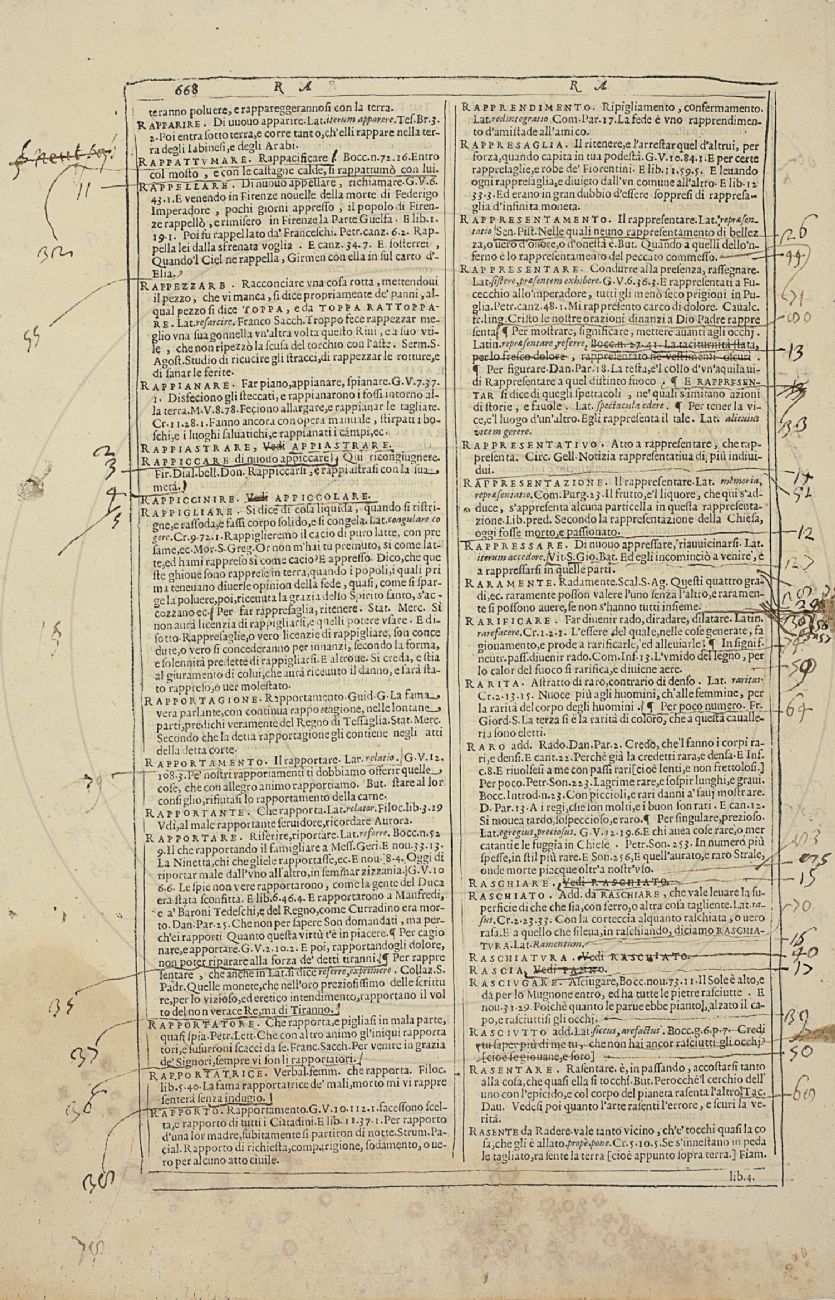 668 R A R A
teranno poluere, e rappareggerannosi con la terra.
RAPPARIRE. Di nuouo apparire. Lat. iterum apparere. Tes. Br. 3.
2. Poi entra sotto terra, e corre tanto, ch'elli rappare nella ter-
ra degl Iabinesi, e degli Arabi.
RAPPATTVMARE. Rappacificare Bocc. n. 72. 16. Entro
col mosto, e con le castagne calde, si rappattumò con lui.
RAPPELLARE. Di nuouo appellare, richiamare. G. V. 6.
43. 1. E venendo in Firenze nouelle della morte di Federigo
Imperadore, pochi giorni appresso, il popolo di Firen-
ze rappellò, e rimisero in Firenze la Parte Guelfa. E lib. 1.
19. 1. Poi fu rappellato da' Franceschi. Petr. canz. 6. 2. Rap-
pella lei dalla sfrenata voglia. E canz. 34. 7. E sofferrei,
Quando'l Ciel ne rappella, Girmen con ella in sul carto d'-
Elia.
RAPPEZZARE. Racconciare vna cosa rotta, mettendoui
il pezzo, che vi manca, si dice propriamente de' panni, al-
qual pezzo si dice TOPPA, e da TOPPA RATTOPPA-
RE. Lat. resarcire. Franco Sacch. Troppo fece rappezzar me-
glio vna sua gonnella vn'altra volta questo Rini, e a suo vti-
le, che non ripezzò la scusa del torchio con l'aste. Serm. S.
Agost. Studio di ricucire gli stracci, di rappezzar le rotture, e
di sanar le ferite.
RAPPIANARE. Far piano, appianare, spianare. G. V. 7. 37.
1. Disfeciono gli steccati, e rappianarono i fossi intorno al-
la terra. M. V. 8. 78. Feciono allargare, e rappianar le tagliate.
Cr. 11. 28. 1. Fanno ancora con opera manuale, stirpati i bo-
schi, e i luoghi saluatichi, e rappianati i campi, ec.
RAPPIASTRARE, Vedi APPIASTRARE.
RAPPICCARE di nuouo appiccare], Qui ricongiugnere.
Fir. Dial. bell. Don. Rappiccarsi, e rappiastrasi con la sua
metà.]
RAPPICCINIRE. Vedi APPICCOLARE.
RAPPIGLIARE. Si dice di cosa liquida, quando si ristri-
gne, e rassoda, e fassi corpo solido, e si congela. Lat. congulare co
gere. Cr. 9. 72. 1. Rappiglieremo il cacio di puro latte, con pre
same, ec. Mor. S. Greg. Or non m'hai tu premuto, sì come lat-
te, ed hami rappreso sì come cacio? E appresso. Dico, che que
ste ghione sono rapprese in terra, quando i popoli, i quali pri
ma teneuano diuerse opinion della fede, quasi, come si spar-
ge la poluere, poi, riceuuta la grazia dello Spirito santo, s'ac-
cozzano ec. Per far rappresaglia, ritenere. Stat. Merc. Si
non aurà licenzia di rappigliarsi, e quelli potere vsare. E di-
sotto. Rappresaglie, o vero licenzie di rappigliare, son conce
dute, o vero si concederanno per innanzi, secondo la forma,
e solennità predette di rappigliarsi. E altroue. Si creda, e stia
al giuramento di colui, che aurà riceuuto il danno, e sarà sta-
to rappreso, o uer molestato.
RAPPORTAGIONE. Rapportamento. Guid. G. La fama
vera parlante, con continua rapportagione, nelle lontane
parti, predichi veramente del Regno di Tessaglia. Stat. Merc.
Secondo che la detta rapportagione gli contiene negli atti
della detta corte.
RAPPORTAMENTO. Il rapportare. Lat. relatio. G. V. 12.
108. 3. Pe' nostri rapportamenti ti dobbiamo offerir quelle
cose, che con allegro animo rapportiamo. But. stare al lor
consiglio, rifiutasi lo rapportamento della carne.
RAPPORTANTE. Che rapporta. Lat. relator. Filoc. lib. 3. 19
Vdi, al male rapportante seruidore, ricordare Aurora.
RAPPORTARE. Riferire, riportare. Lat. referre. Bocc. n. 52
9. Il che rapportando il famigliare a Mess. Geri. E nou. 33. 13.
La Ninetta, chi che gliele rapportasse, ec. E nou. 84. Oggi di
riportar male dall'vno all'altro, in seminar zizzania. G. V. 10
6. 6. Le spie non vere rapportarono, come la gente del Duca
era stata sconfitta. E lib. 6. 46. 4. E rapportarono a Manfredi,
e a' Baroni Tedeschi, e del Regno, come Curradino era mor-
to. Dan. Par. 25. Che non per sapere Son domandati, ma per-
ch'ei rapporti Quanto questa virtù t'è in piacere. ¶ Per cagio
nare, e apportare. G. V. 2. 10. 2. E poi, rapportandogli dolore,
non poter riparare alla forza de' detti tiranni. ¶ Per rappre
sentare, che anche in Lat. si dice referre, exprimere. Collaz. S.
Padr. Quelle monete, che nell'oro preziosissimo delle scrittu
re, per lo vizioso, ed eretico intendimento, rapportano il vol
to del non verace Re, ma di Tiranno.]
RAPPORTATORE. Che rapporta, e pigliasi in mala parte,
quasi spia. Petr. Lett. Che con altro animo gl'iniqui rapporta
tori, e susurroni scacci da se. Franc. Sacch. Per venire in grazia
de' Signori, sempre vi son li rapportatori.
RAPPORTATRICE. Verbal. femm. che rapporta. Filoc.
lib. 5. 40. La fama rapportatrice de' mali, morto mi vi rappre
senterà senza indugio.
RAPPORTO. Rapportamento. G. V. 10. 112. 1. facessono scel-
ta, e rapporto di tutti i Cittadini. E lib. 11. 37. 1. Per rapporto
d'una lor madre, subitamente si partiron di notte. Strum. Pa-
cial. Rapporto di richiesta, comparigione, sodamento, o ue-
ro per alcuno atto ciuile.
RAPPRENDIMENTO. Ripigliamento, confermamento.
Lat. redintegratio. Com. Par. 17. La fede è vno rapprendimen-
to d'amistade all'amico.
RAPPRESAGLIA. Il ritenere, e l'arrestar quel d'altrui, per
forza, quando capita in tua podestà. G. V. 10. 84. 1. E per certe
rappresaglie, e robe de' Fiorentini. E lib. 11. 59. 5. E leuando
ogni rappresaglia, e diuieto dall'vn comune all'altro. E lib. 12
33. 3. Ed erano in gran dubbio d'essere soppresi di rappresa-
glia d'infinita moneta.
RAPPRESENTAMENTO. Il rappresentare. Lat. repræsen-
tatio. Sen. Pist. Nelle quali neuno rappresentamento di bellez
za, o uero d'onore, o d'onestà è. But. Quando a quelli dello'n-
ferno è lo rappresentamento del peccato commesso.
RAPPRESENTARE. Condurre alla presenza, rassegnare.
Lat. sistere, præsentem exhibere. G. V. 6. 36. 3. E rappresentati a Fu-
cecchio allo'mperadore, tutti gli menò seco prigioni in Pu-
glia. Petr. canz. 48. 1. Mi rappresento carco di dolore. Caualc.
fr. ling. Cristo le nostre orazioni dinanzi a Dio Padre rappre
senta. ¶ Per mostrare, significare, mettere auanti agli occhj.
Latin. repræsentare, referre, Bocc. n. 27. 41. La taciturnità stata,
per lo fresco dolore, rappresentato ne vestimenti oscuri.
¶ Per figurare. Dan. Par. 18. La testa, e'l collo d'vn'aquila ui-
di Rappresentare a quel distinto fuoco. ¶ E RAPPRESEN-
TAR si dice di quegli spettacoli, ne' quali s'imitano azioni
di storie, e fauole. Lat. spectacula edere. ¶ Per tener la vi-
ce, e'l luogo d'un'altro. Egli rappresenta il tale. Lat. alicuius
vicem gerere.
RAPPRESENTATIVO. Atto a rappresentare, che rap-
presenta. Circ. Gell. Notizia rappresentatiua di, più indiui-
dui.
RAPPRESENTAZIONE. Il rappresentare. Lat. memoria,
repræsentatio. Com. Purg. 23. Il frutto, e'l liquore, che qui s'ad-
duce, s'appresenta alcuna particella in questa rappresenta-
zione. Lib. pred. Secondo la rappresentazione della Chiesa,
oggi fosse morto, e passionato.
RAPPRESSARE. Di nuouo appressare, riauuicinarsi. Lat.
iterum accedere. Vit. S. Gio. Bat. Ed egli incominciò a venire, e
a rappressarsi in quelle parti.
RARAMENTE. Radamente. Scal. S. Ag. Questi quattro gra-
di, ec. raramente posson valere l'uno senza l'altro, e raramen-
te si possono auere, se non s'hanno tutti insieme.
RARIFICARE. Far diuenir rado, diradare, dilatare. Latin.
rarefacere. Cr. 1. 2. 1. L'essere del quale, nelle cose generate, fa
giouamento, e prode a rarificarle, ed alleuiarle. ¶ In signif.
neutr. pass. diuenir rado. Com. Inf. 13. L'vmido del legno, per
lo calor del fuoco si rarifica, e diuiene aere.
RARITA. Astratto di raro, contrario di denso. Lat. raritas.
Cr. 2. 13. 15. Nuoce più agli huomini, ch'alle femmine, per
la rarità del corpo degli huomini. ¶ Per poco numero. Fr.
Giord. S. La terza si è la rarità di coloro, che a questa caualle-
ria sono eletti.
RARO add. Rado. Dan. Par. 2. Credo, che'l fanno i corpi ra-
ri, e densi. E cant. 22. Perchè già la credetti rara, e densa. E Inf.
c. 8. E riuolsesi a me con passi rari [cioè lenti, e non frettolosi.]
Per poco. Petr. Son. 223. Lagrime rare, e sospir lunghi, e graui.
Bocc. Introd. n. 23. Con piccioli, e rari danni a' saui mostrare.
D. Par. 13. A i regi, che son molti, e i buon son rari. E can. 12.
Si mouea tardo, sospeccioso, e raro. ¶ Per singulare, prezioso.
Lat. egregius, preciosus. G. V. 12. 19. 6. E chi auea cose rare, o mer
catantie le fuggia in Chiese. Petr. Son. 253. In numero più
spesse, in stil più rare. E Son. 256. E quell'aurato, e raro Strale,
onde morte piacque oltr'a nostr'vso.
RASCHIARE. Vedi RASCHIATO.
RASCHIATO. Add. da RASCHIARE, che vale leuare la su-
perficie di che che sia, con ferro, o altra cosa tagliente. Lat. ra-
sus. Cr. 2. 23. 33. Con la corteccia alquanto raschiata, o uero
rasa. E a quello che si leua, in raschiando, diciamo RASCHIA-
TVRA. Lat. Ramentum.
RASCHIATVRA. Vedi RASCHIATO.
RASCIA, Vedi PANNO.
RASCIVGARE. Asciugare. Bocc. nou. 73. 11. Il Sole è alto, e
da per lo Mugnone entro, ed ha tutte le pietre rasciutte. E
nou. 31. 29. Poichè quanto le parue ebbe pianto, alzato il ca-
po, e rasciuttisi gli occhj.
RASCIVTTO add. Lat. siccus, arefactus. Bocc. g. 6. p. 7. Credi
tu saper più di me tu, che non hai ancor rasciutti gli occhj?
[cioè se giouane, e soro]
RASENTARE. Rasentare. è, in passando, accostarsi tanto
alla cosa, che quasi ella si tocchi. But. Perocchè'l cerchio dell'
uno con l'epicido, e col corpo del pianeta rasenta l'altro. Tac.
Dau. Vedesi poi quanto l'arte rasenti l'errore, e scuri la ve-
rità.
RASENTE da Radere. vale tanto vicino, ch'e' tocchi quasi la co
sa, che gli è allato. propè, pone. Cr. 5. 10. 5. Se s'innestano in peda
le tagliato, rasente la terra [cioè appunto sopra terra.] Fiam.
lib. 4.
11
32
55
2
3
4
5
35
37
36
38
78
126
13
33
14
12
127
59
64
15
70
16
40
17
39
50
60